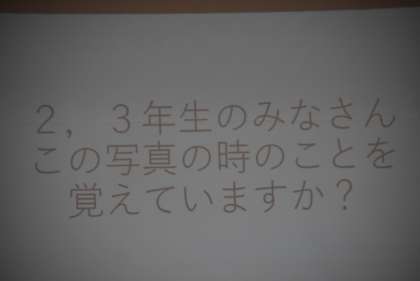 ２，３年生のみなさん
この写真の時のことを
覚えていますか？